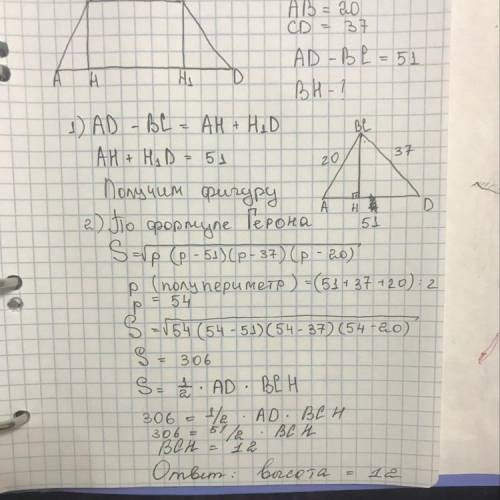 AB = 20
CD = 37
AD - BC = 51
BH - ?
A H H₁ D
1) AD - BC = AH + H₁D
AH + H₁D = 51
Получим фигуру
BC
20 37
A H D
51
2) По формуле Герона
S = √p (p - 51)(p - 37)(p - 20)
p (полупериметр) = (51 + 37 + 20) : 2
p = 54
S = √54 (54 - 51)(54 - 37)(54 - 20)
S = 306
S = 1/2 · AD · BCH
306 = 1/2 · AD · BCH
306 = 51/2 · BCH
BCH = 12
Ответ: высота = 12